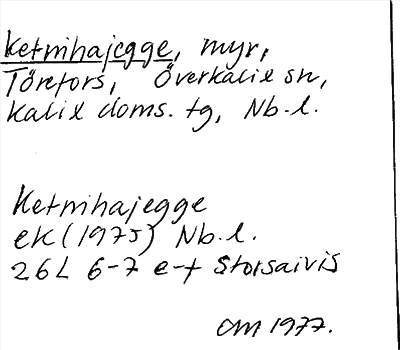 Ketnihajegge, myr,
Törefors, Överkalix sn,
Kalix doms. tg, Nb.l.
Ketnihajegge
ek (1975) Nb.l.
26L 6-7 e-f Storsaivis
OM 1977.